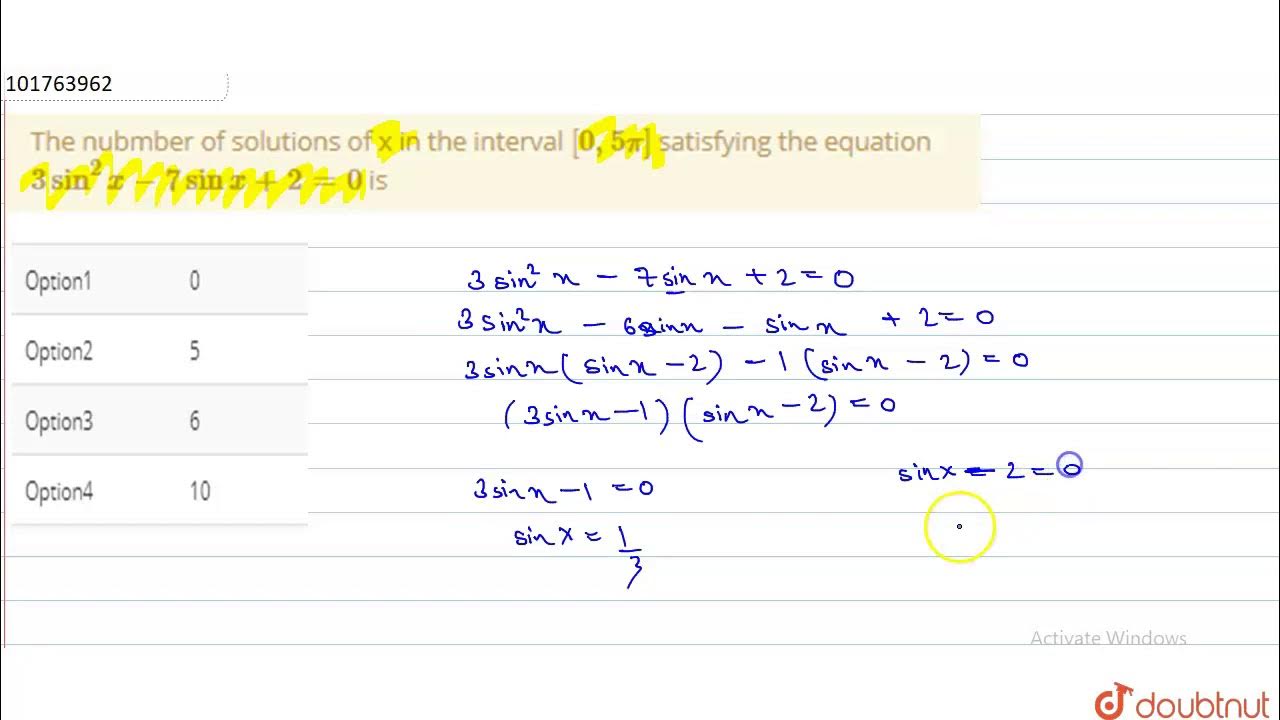 101763962
The nubmber of solutions of x in the interval [0, 5π] satisfying the equation
3 sin² x − 7 sin x + 2 = 0 is
Option1 0
Option2 5
Option3 6
Option4 10
3 sin² x − 7 sin x + 2 = 0
3 sin² x − 6 sin x − sin x + 2 = 0
3 sin x ( sin x − 2) − 1 (sin x − 2) = 0
(3 sin x − 1) (sin x − 2) = 0
3 sin x − 1 = 0
sin x = 1/3
sin x − 2 = 0
Activate Windows
doubtnut